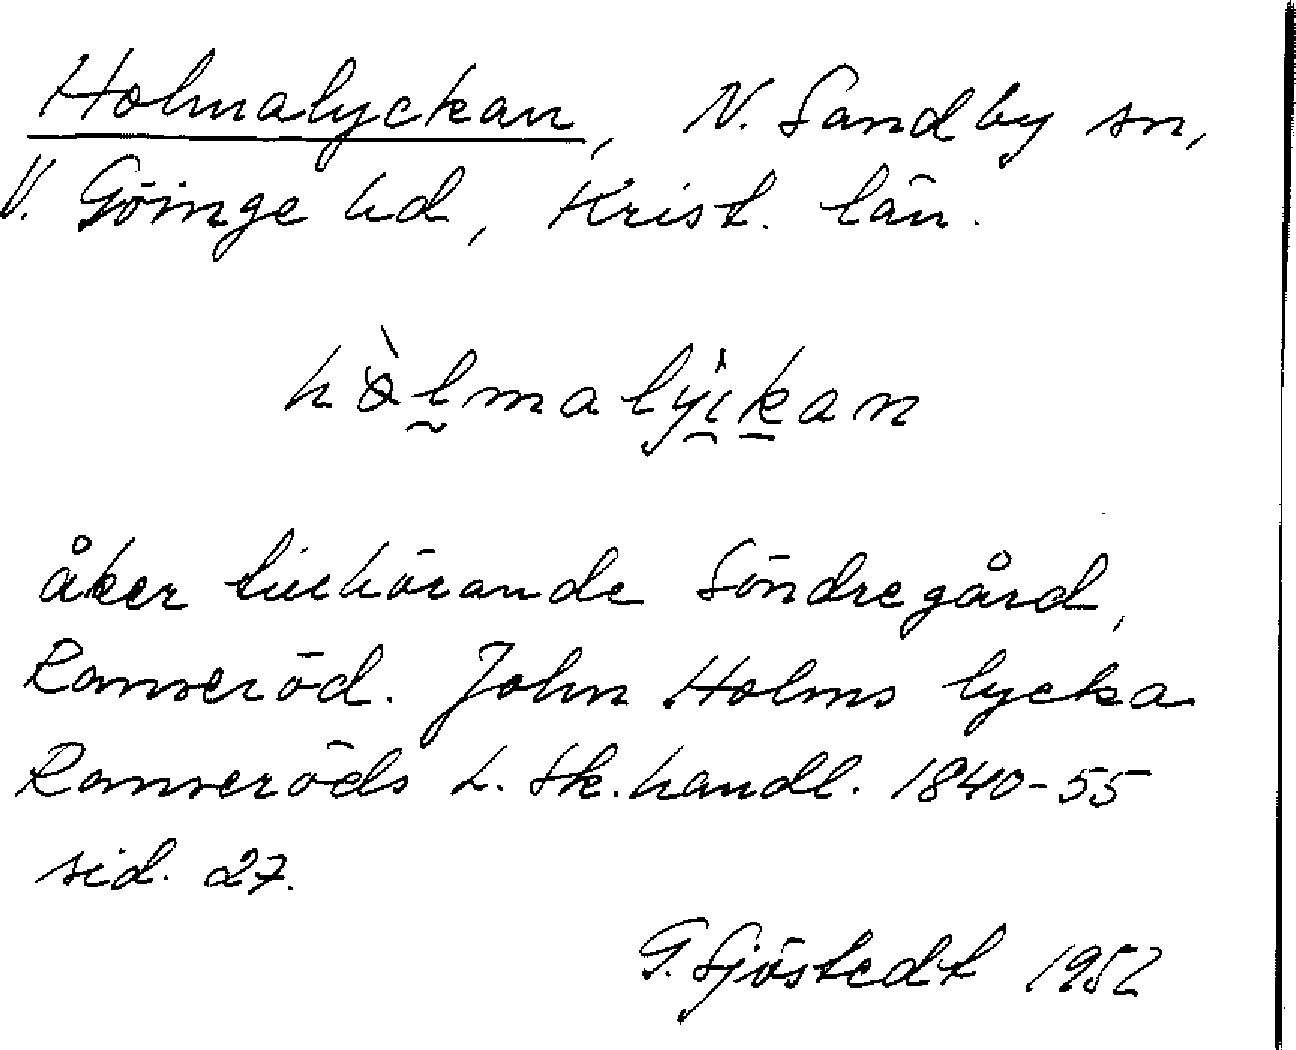 Holmalyckan, N. Sandby sn,
V. Göinge hd, Krist. län.
hòlmalyikan
åker tillhörande Söndregård,
Ranseröd. John Holms lycka
Ranseröds L. Sk. handl. 1840-55
sid. 27.
G. Sjöstedt 1952